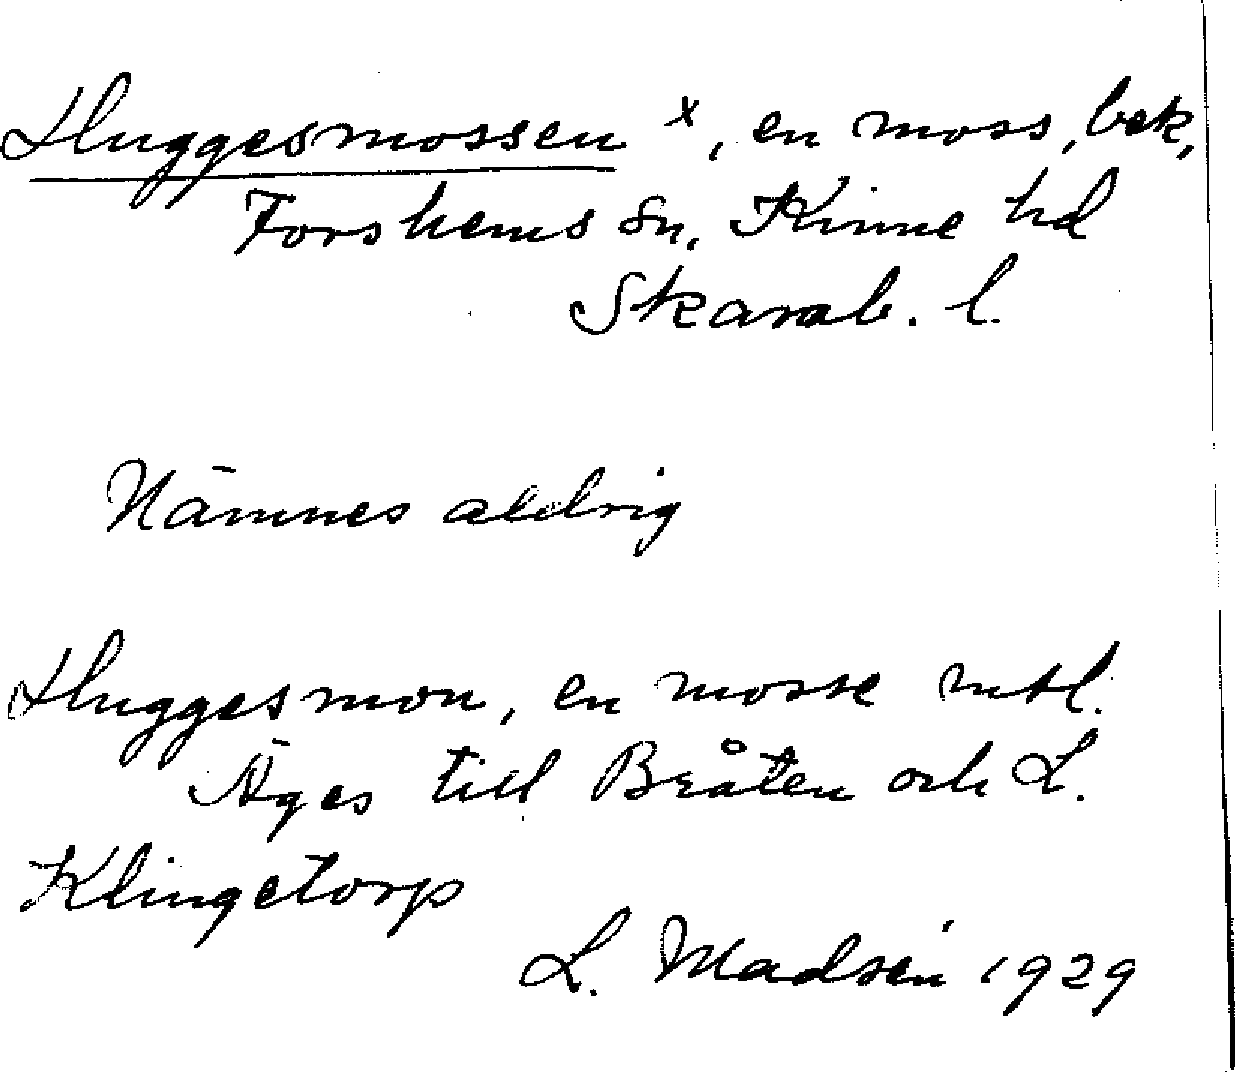 Huggesmossen x, en moss, bek,
Forshems sn, Kinne hd
Skarab. l.
Nämnes aldrig
Huggesmon, en mosse
Äges till Bråten och L.
Klingetorp
L. Madsén 1929